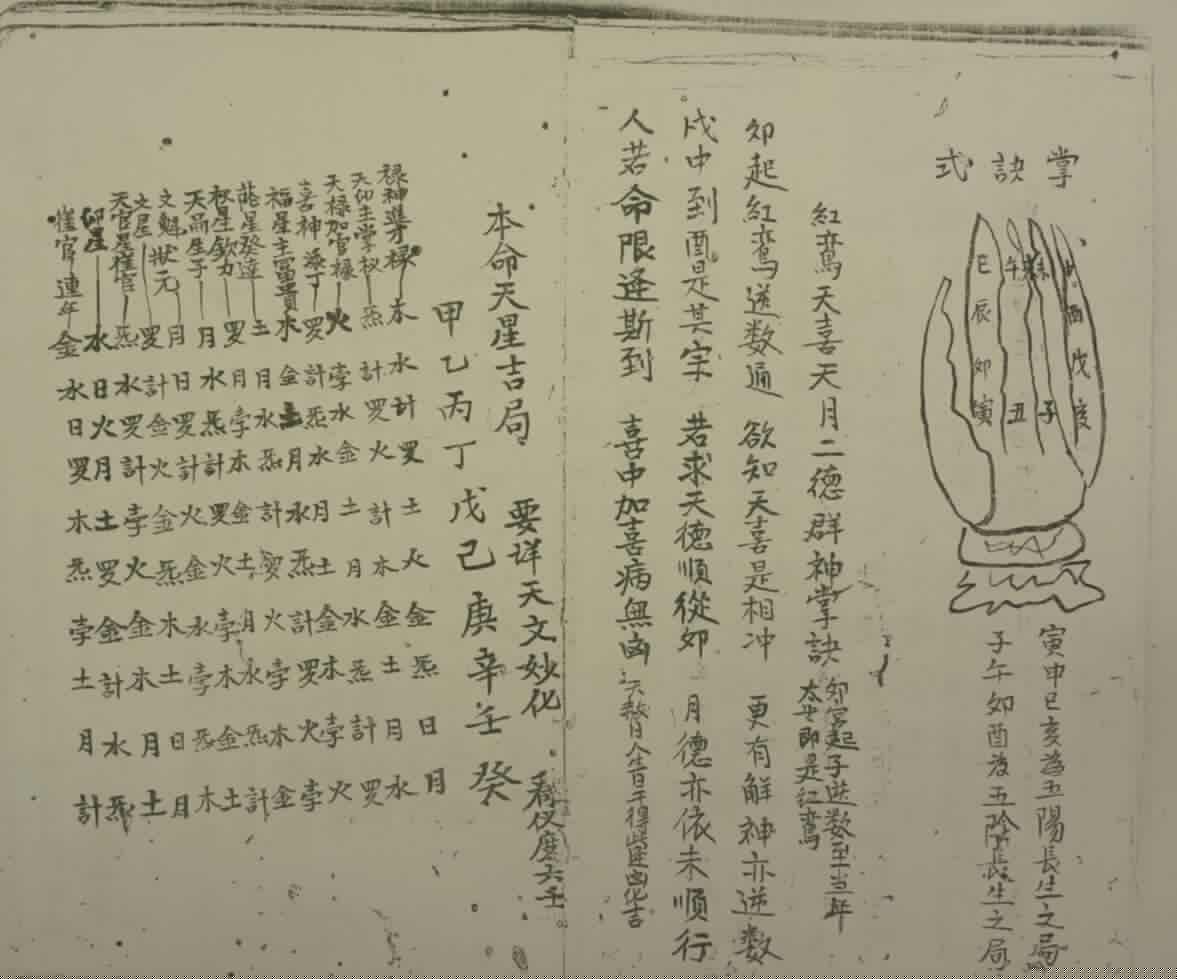 掌訣式
巳辰卯寅
午丑
未子
申酉戌亥
寅申巳亥為五陽長生之局
子午卯酉為五陰長生之局
紅鸞天喜天月二德群神掌訣
卯宮起子逆数至当年
太歲即是紅鸞
卯起紅鸞逆数通 欲知天喜是相冲 更有解神亦逆数
戌中到酉是其宗 若求天德順從卯 月德亦依未順行
人若命限逢斯到 喜中加喜病無凶
本命天星吉局 要详天文妙化 看仪度六壬
甲乙丙丁戊己庚辛壬癸
禄神進才禄 木水計罗土火金炁日月
天仰主掌权 炁計罗火計木金土月水
天禄加官禄 火孛水金土月水炁計罗
喜神添丁 罗計炁水月土金木孛火
福星主富貴 木金土月水炁計罗火孛
能星發達 土月水炁計罗火孛木金
权星欽力 罗月孛木金土月水炁計
天嗣生子 月水炁計罗火孛木金土
文魁狀元 月日罗計火金水孛炁木
文星 罗計金火金炁木土日月
天官星催官 炁水罗計孛火金木月土
印星 水日火月土罗金計水炁
催官連年 金水日罗木炁孛土月計